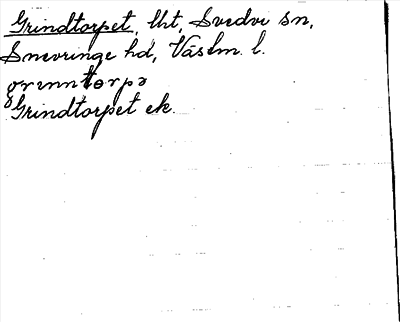 Grindtorpet, lht, Svedvi sn,
Snevringe hd, Västm. l.
grinntorpə
Grindtorpet ek.